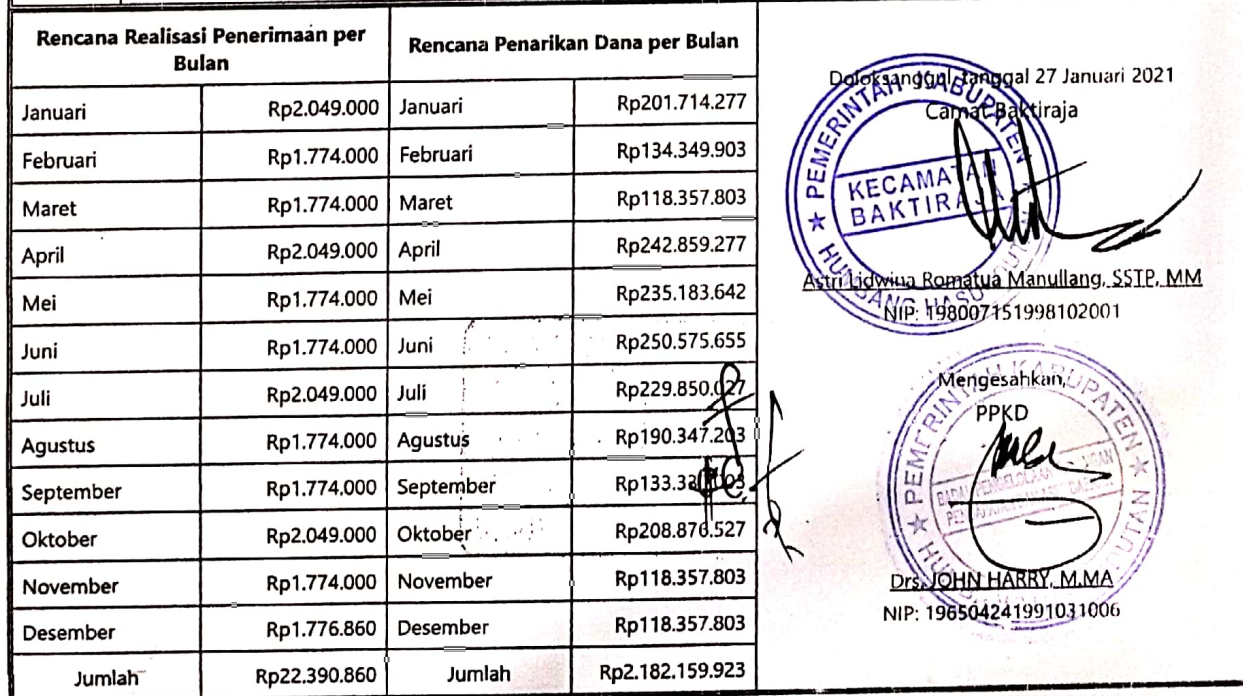 Rencana Realisasi Penerimaan per Bulan
Rencana Penarikan Dana per Bulan
Januari Rp2.049.000 Januari Rp201.714.277
Februari Rp1.774.000 Februari Rp134.349.903
Maret Rp1.774.000 Maret Rp118.357.803
April Rp2.049.000 April Rp242.859.277
Mei Rp1.774.000 Mei Rp235.183.642
Juni Rp1.774.000 Juni Rp250.575.655
Juli Rp2.049.000 Juli Rp229.850.027
Agustus Rp1.774.000 Agustus Rp190.347.203
September Rp1.774.000 September
Oktober Rp2.049.000 Oktober Rp208.876.527
November Rp1.774.000 November Rp118.357.803
Desember Rp1.776.860 Desember Rp118.357.803
Jumlah Rp22.390.860 Jumlah Rp2.182.159.923
Doloksanggul, tanggal 27 Januari 2021
Camat Baktiraja
PEMERINTAH KABUPATEN
KECAMATAN
BAKTIRAJA
Astri Lidwina Romatua Manullang, SSTP, MM
NIP: 198007151998102001
Mengesahkan,
PPKD
PEMERINTAH KABUPATEN
Drs. JOHN HARRY, M.MA
NIP: 196504241991031006